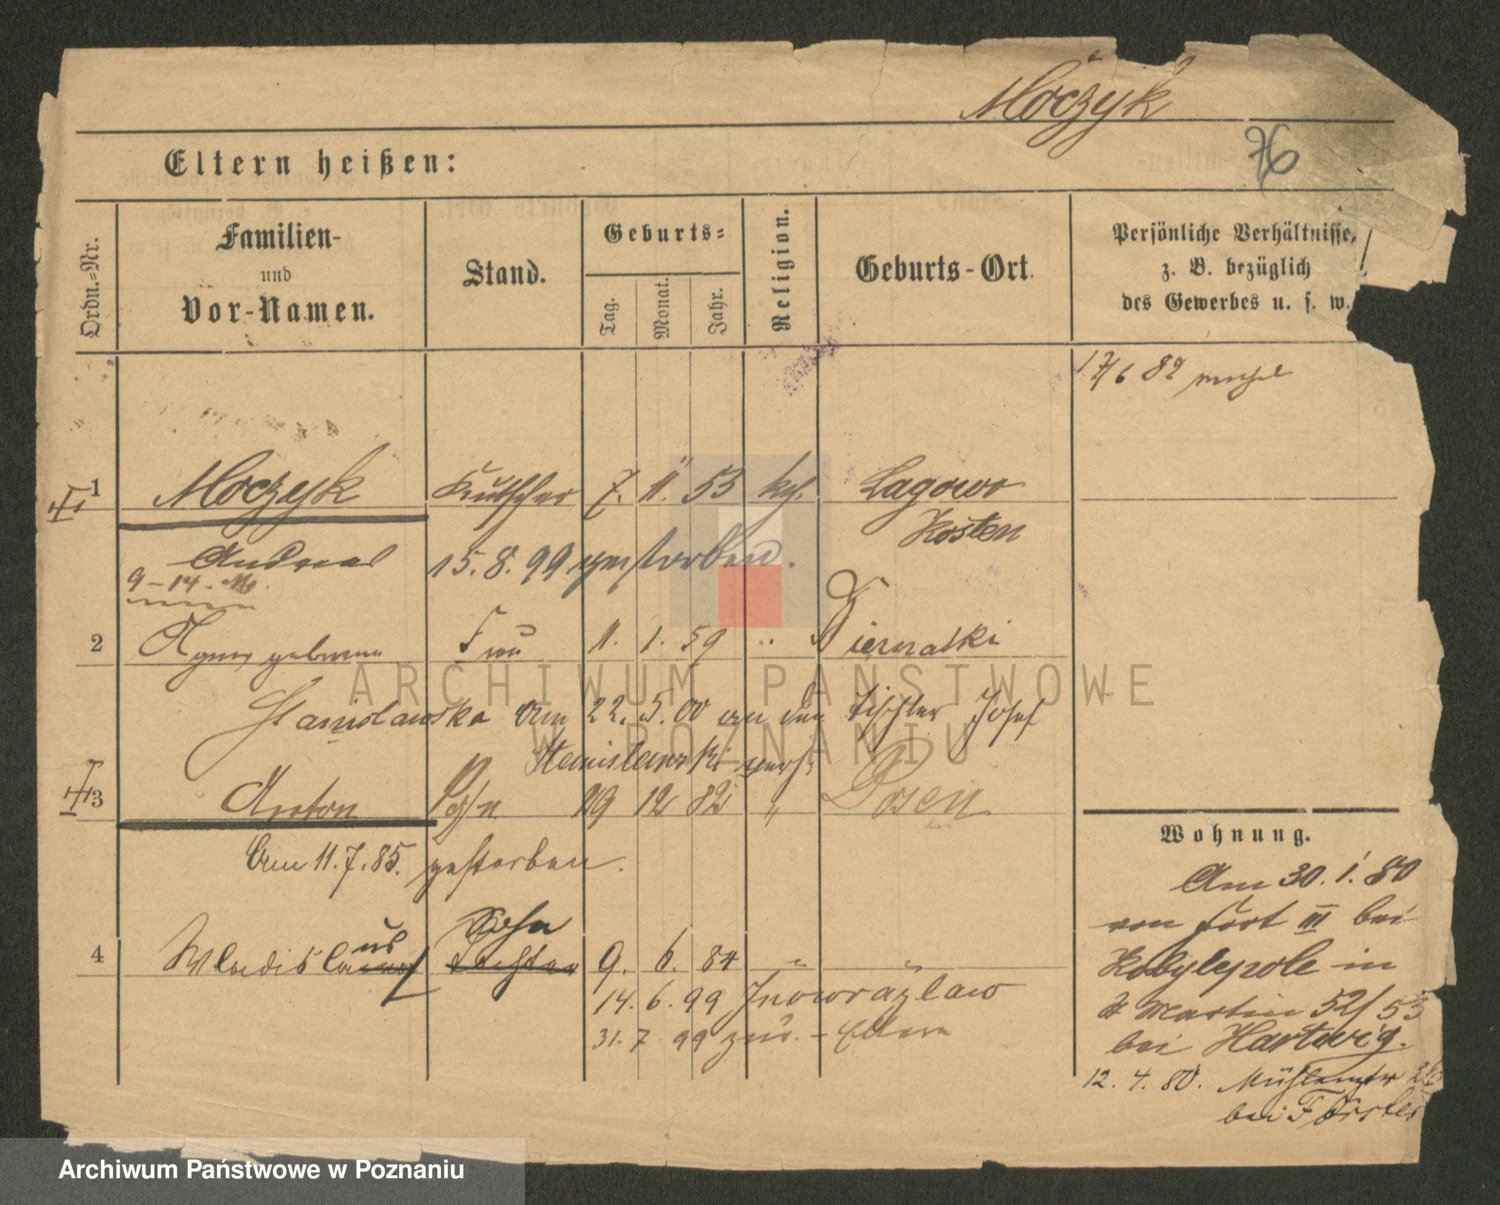 Moczyk
76
Eltern heißen:
Ordn.-Nr.
Familien-
und
Vor-Namen.
Stand.
Geburts-
Tag.
Monat.
Jahr.
Religion.
Geburts-Ort.
Persönliche Verhältnisse,
z. B. bezüglich
des Gewerbes u. s. w.
17/6 82
1 Moczyk Kutscher 7. 11. 53 kth. Lagowo
Kosten
Andreas 15. 8. 99 gestorben.
9-14.
2 Agnes geborene Frau 11. 1. 59 " Biernatki
Stanislawska Am 22. 5. 00 an den Tischler Josef
Stanislawski verh.
3 Anton Sohn 29 12 82 " Posen
Am 11. 7. 85. gestorben.
Sohn
us
4 Wladislaus Tochter 9. 6. 84 " "
14. 6. 99 Inowrazlaw
31. 7. 99 zur. - Eltern
Wohnung.
Am 30. 1. 80
von Fort III bei
Kobylepole in
St Martin 52/53
bei Hartwig.
12. 4. 80. Mühlenstr
bei Förster
ARCHIWUM PAŃSTWOWE
W POZNANIU
Archiwum Państwowe w Poznaniu